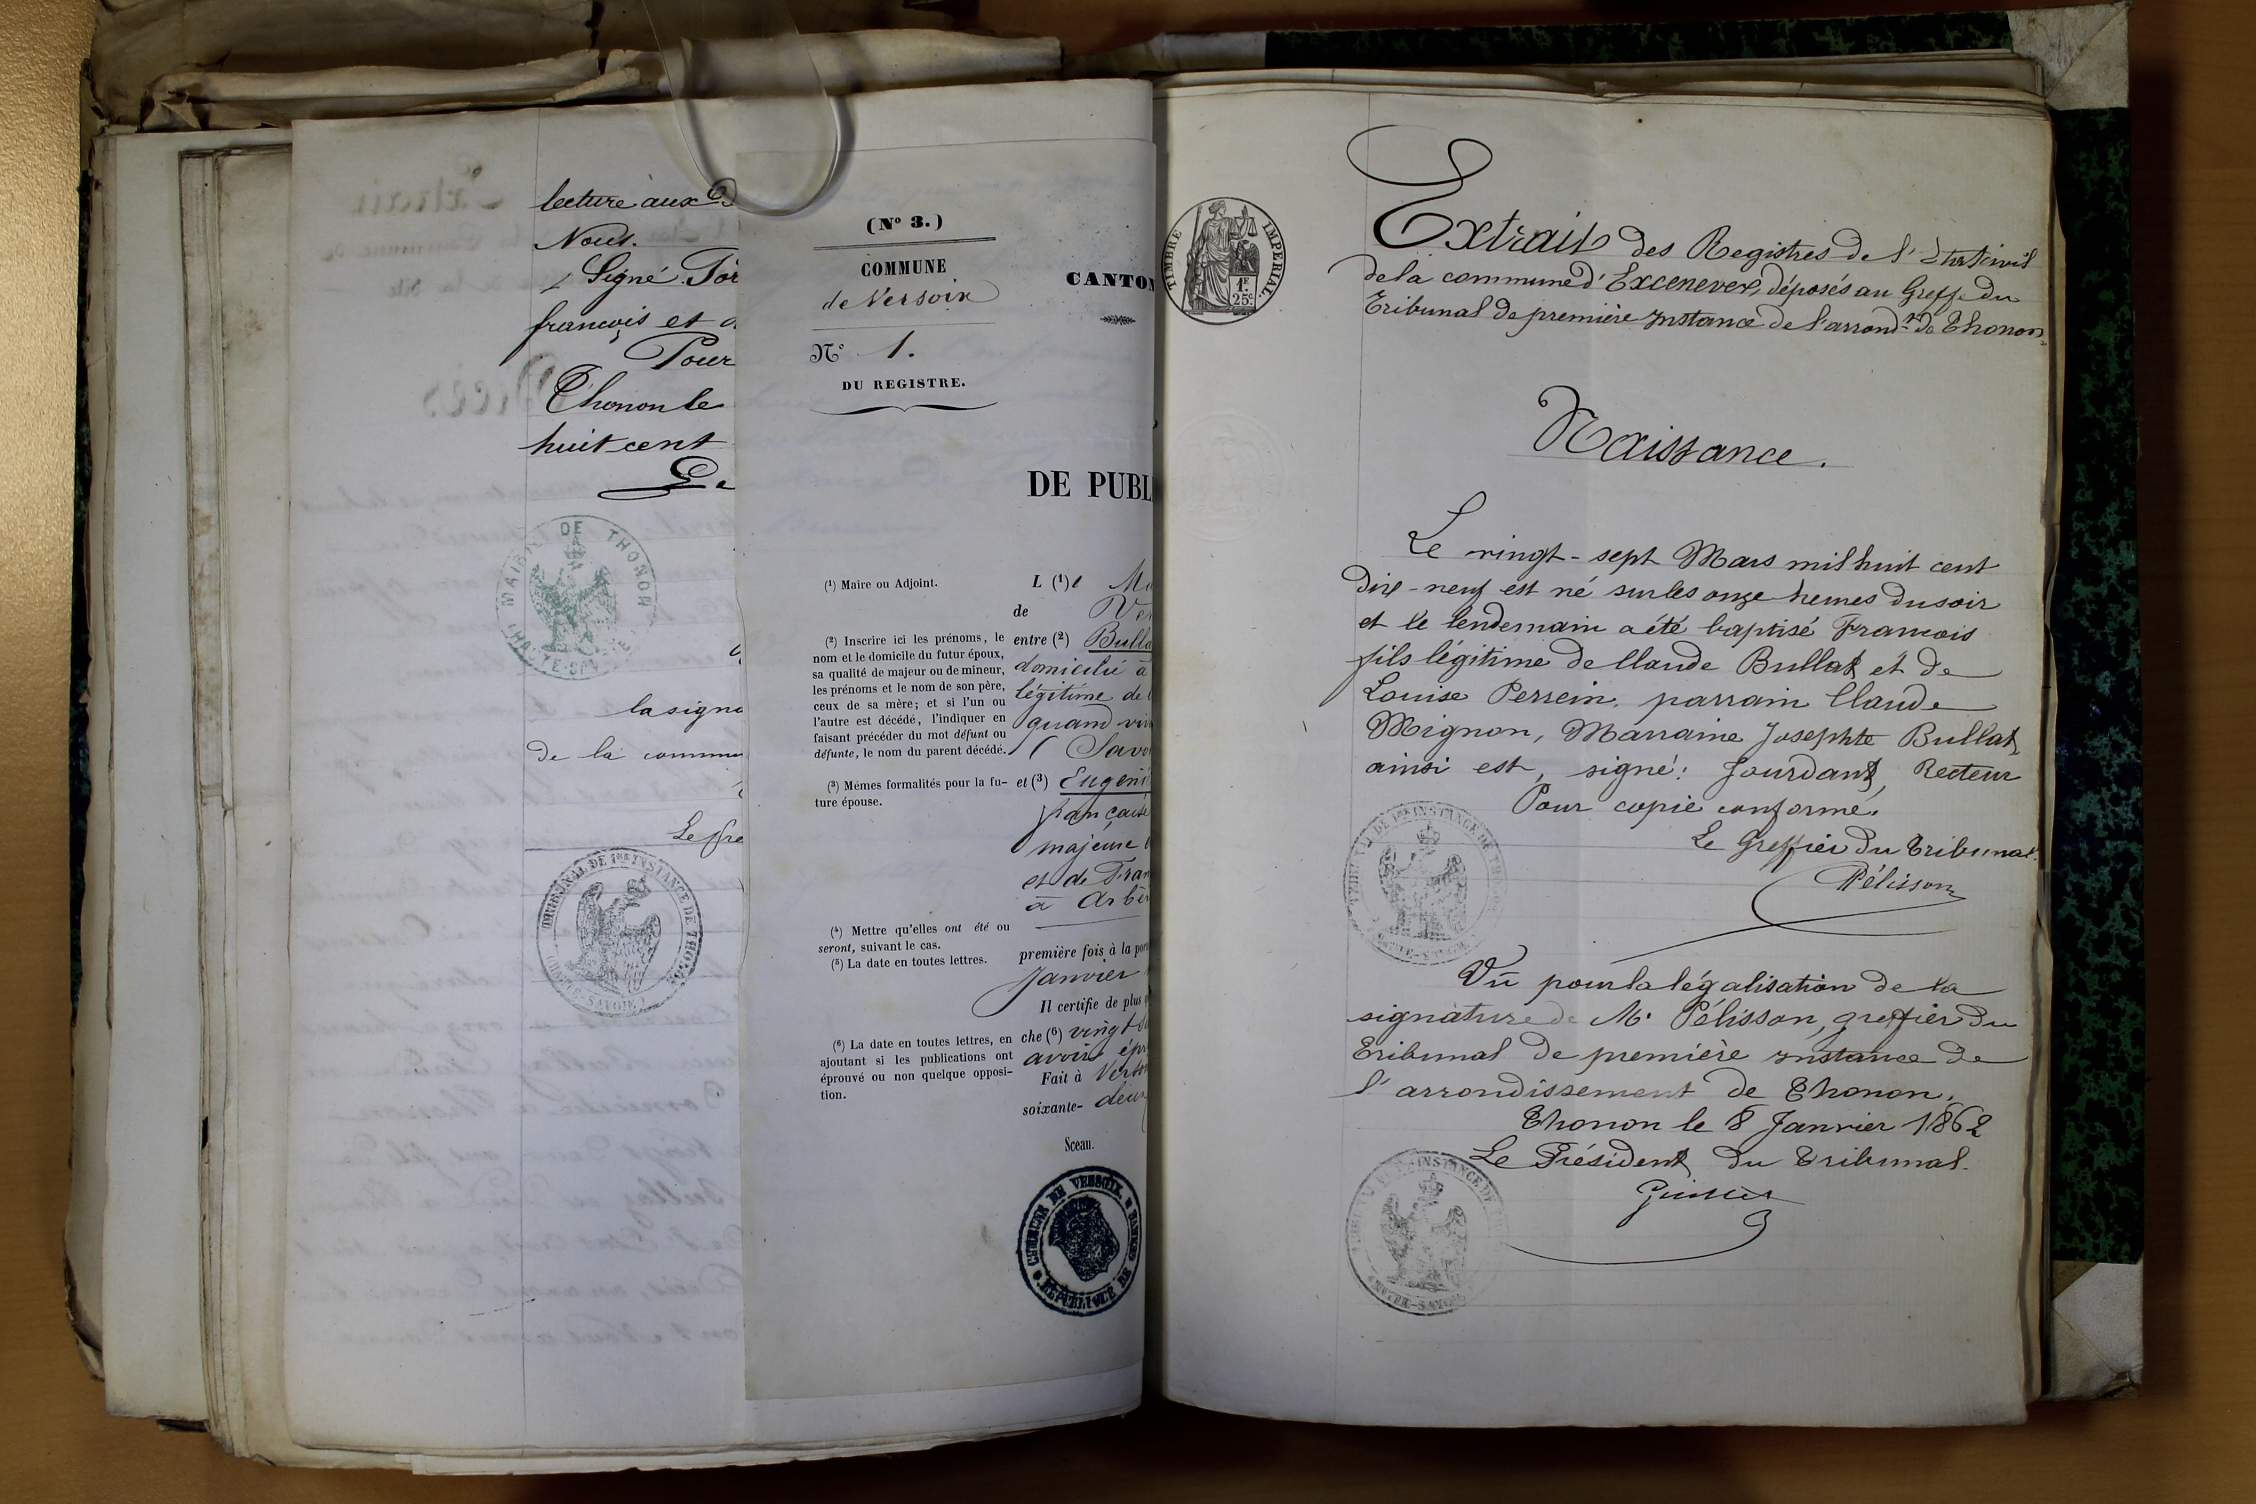 lecture aux
Nous.
Signé
françois et
Pour
Thonon le
huit cent
MAIRIE DE THONON
(HAUTE-SAVOIE)
la signa
de la commu
Le
TRIBUNAL DE 1ère INSTANCE DE THONON
(HAUTE-SAVOIE)
(No 3.)
COMMUNE
de Versoix
No 1.
DU REGISTRE.
CANTON
DE PUBL
(1) Maire ou Adjoint.
(2) Inscrire ici les prénoms, le
nom et le domicile du futur époux,
sa qualité de majeur ou de mineur,
les prénoms et le nom de son père,
ceux de sa mère; et si l'un ou
l'autre est décédé, l'indiquer en
faisant précéder du mot défunt ou
défunte, le nom du parent décédé.
(3) Mêmes formalités pour la fu-
ture épouse.
(4) Mettre qu'elles ont été ou
seront, suivant le cas.
(5) La date en toutes lettres.
(6) La date en toutes lettres, en
ajoutant si les publications ont
éprouvé ou non quelque opposi-
tion.
L (1) e Ma
de Ver
entre (2) Bulla
domicilié à
légitime de
quand viv
(Savo
et (3) Eugéni
française
majeure
et de Fran
à Arbè
première fois à la por
janvier
Il certifie de plus q
che (6) vingt
avoir épr
Fait à Verso
soixante- deux
Sceau.
COMMUNE DE VERSOIX. CANTON DE
RÉPUBLIQUE
TIMBRE IMPERIAL.
1F.
25c.
Extrait des Registres de l'Etat civil
de la commune d'Excenevex, déposés au Greffe du
Tribunal de première Instance de l'arrondt de Thonon.
Naissance.
Le vingt-sept Mars mil huit cent
dix-neuf est né sur les onze heures du soir
et le lendemain a été baptisé François
fils légitime de Claude Bullat et de
Louise Perrein, parrain Claude
Mignon, Marraine Josephte Bullat,
ainsi est, signé: Jourdant, Recteur
Pour copie conforme.
Le Greffier du Tribunal.
Pélisson
TRIBUNAL DE 1ère INSTANCE DE THONON
(HAUTE-SAVOIE)
Vu pour la légalisation de la
signature de Mr Pélisson, greffier du
Tribunal de première instance de
l'arrondissement de Thonon.
Thonon le 8 Janvier 1862
Le Président du Tribunal.
TRIBUNAL DE 1ère INSTANCE DE THONON
(HAUTE-SAVOIE)